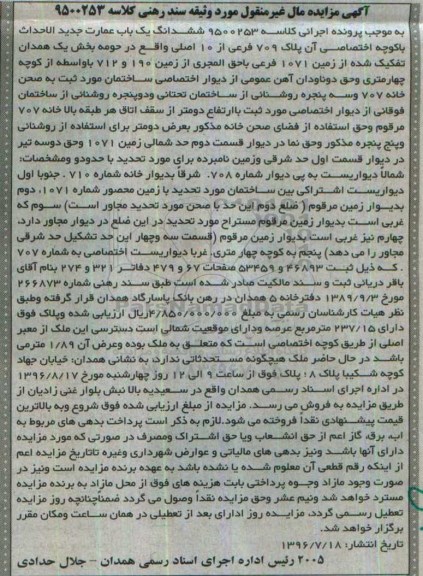 آگهی مزایده مال غیرمنقول مورد وثیقه سند رهنی کلاسه ۹۵۰۰۲۵۳
به موجب پرونده اجرائی کلاسه ۹۵۰۰۲۵۳ ششدانگ یک باب عمارت جدید الاحداث
باکوچه اختصاصی آن پلاک ۷۰۹ فرعی از ۱۰ اصلی واقع در حومه بخش یک همدان
تفکیک شده از زمین ۱۰۷۱ فرعی باحق المجری از زمین ۱۹۰ و ۷۱۲ باواسطه از کوچه
چهارمتری وحق دوناودان آهن عمومی از دیوار اختصاصی ساختمان مورد ثبت به صحن
خانه ۷۰۷ وسه پنجره روشنائی از ساختمان تحتانی ودوپنجره روشنائی از ساختمان
فوقانی از دیوار اختصاصی مورد ثبت باارتفاع دومتر از سقف اتاق هر طبقه بالا خانه ۷۰۷
مرقوم وحق استفاده از فضای صحن خانه مذکور بعرض دومتر برای استفاده از روشنائی
وپنج پنجره مذکور وحق نما در دیوار قسمت دوم حد شمالی زمین ۱۰۷۱ وحق دوسه تیر
در دیوار قسمت اول حد شرقی وزمین نامبرده برای مورد تحدید با حدودو ومشخصات:
شمالا دیواریست به پی دیوار شماره ۷۰۸. شرقا بدیوار خانه شماره ۷۱۰ . جنوبا اول
دیواریست اشتراکی بین ساختمان مورد تحدید با زمین محصور شماره ۱۰۷۱. دوم
بدیوار زمین مرقوم ( ضلع دوم این حد با صحن مورد تحدید مجاور است) سوم که
غربی است بدیوار زمین مرقوم مستراح مورد تحدید در این ضلع در دیوار مجاور دارد.
چهارم نیز غربی است بدیوار زمین مرقوم (قسمت سه وچهار این حد تشکیل حد شرقی
مجاور را می دهد) پنجم به کوچه چهار متری. غربا دیواریست اختصاصی به شماره ۷۰۷
. که ذیل ثبت ۴۶۸۹۳ و ۵۳۴۵۹ صفحات ۶۷ و ۴۷۹ دفاتر ۳۲۱ و ۲۷۴ بنام آقای
باقر دریائی ثبت و سند مالکیت صادر شده است طبق سند رهنی شماره ۲۶۶۸۷۳
مورخ ۱۳۸۹/۹/۳ دفترخانه ۵ همدان در رهن بانک پاسارگاد همدان قرار گرفته وطبق
نظر هیات کارشناسان رسمی به مبلغ ۴/۸۵۰/۰۰۰/۰۰۰ریال ارزیابی شده وپلاک فوق
دارای ۲۳۷/۱۵ مترمربع عرصه ودارای موقعیت شمالی است دسترسی این ملک از معبر
اصلی از طریق کوچه اختصاصی است که متعلق به ملک بوده وعرض آن ۱/۸۹ مترمی
باشد در حال حاضر ملک هیچگونه مستحدثاتی ندارد، به نشانی همدان: خیابان جهاد
کوچه شکیبا پلاک ۸؛ پلاک فوق از ساعت ۹ الی ۱۲ روز چهارشنبه مورخ ۱۳۹۶/۸/۱۷
در اداره اجرای اسناد رسمی همدان واقع در سعیدیه بالا نبش بلوار غنی زادیان از
طریق مزایده به فروش می رسد. مزایده از مبلغ ارزیابی شده فوق شروع وبه بالاترین
قیمت پیشنهادی نقدا فروخته می شود.لازم به ذکر است پرداخت بدهی های مربوط به
آب، برق، گاز اعم از حق انشعاب ویا حق اشتراک ومصرف در صورتی که مورد مزایده
دارای آنها باشد ونیز بدهی های مالیاتی و عوارض شهرداری وغیره تاتاریخ مزایده اعم
از اینکه رقم قطعی آن معلوم شده یا نشده باشد به عهده برنده مزایده است ونیز در
صورت وجود مازاد وجوه پرداختی بابت هزینه های فوق از محل مازاد به برنده مزایده
مسترد خواهد شد ونیم عشر وحق مزایده نقدا وصول می گردد ضمناچنانچه روز مزایده
تعطیل رسمی گردد، مزایده روز اداری بعد از تعطیلی در همان ساعت ومکان مقرر
برگزار خواهد شد.
تاریخ انتشار: ۱۳۹۶/۷/۱۸
۲۰۰۵ رئیس اداره اجرای اسناد رسمی همدان - جلال حدادی